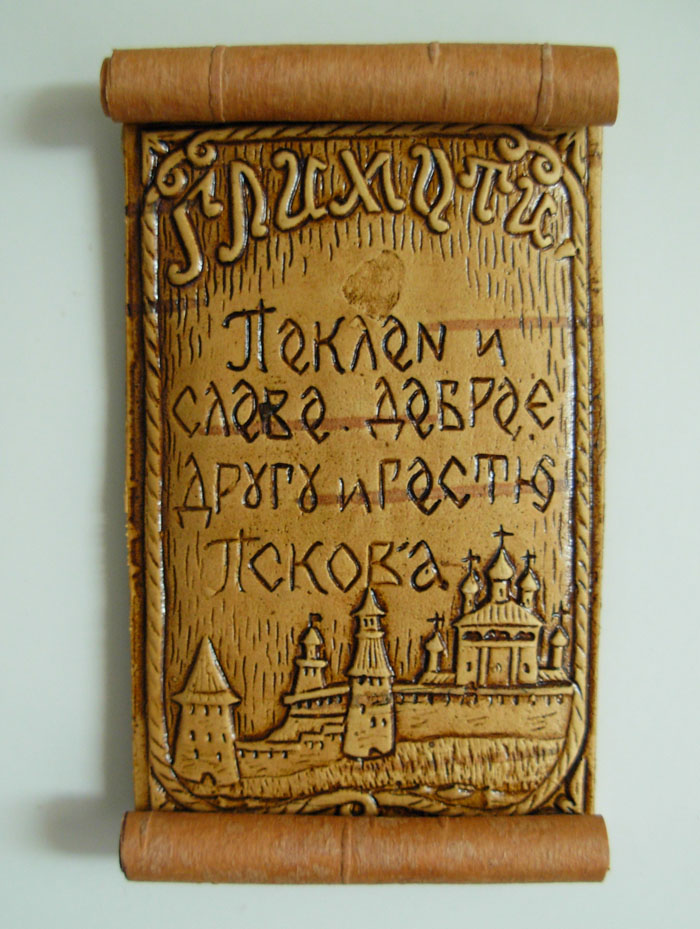 ГРАМОТА
Паклан и
слава. дабрае
другу и гастю
Пскова